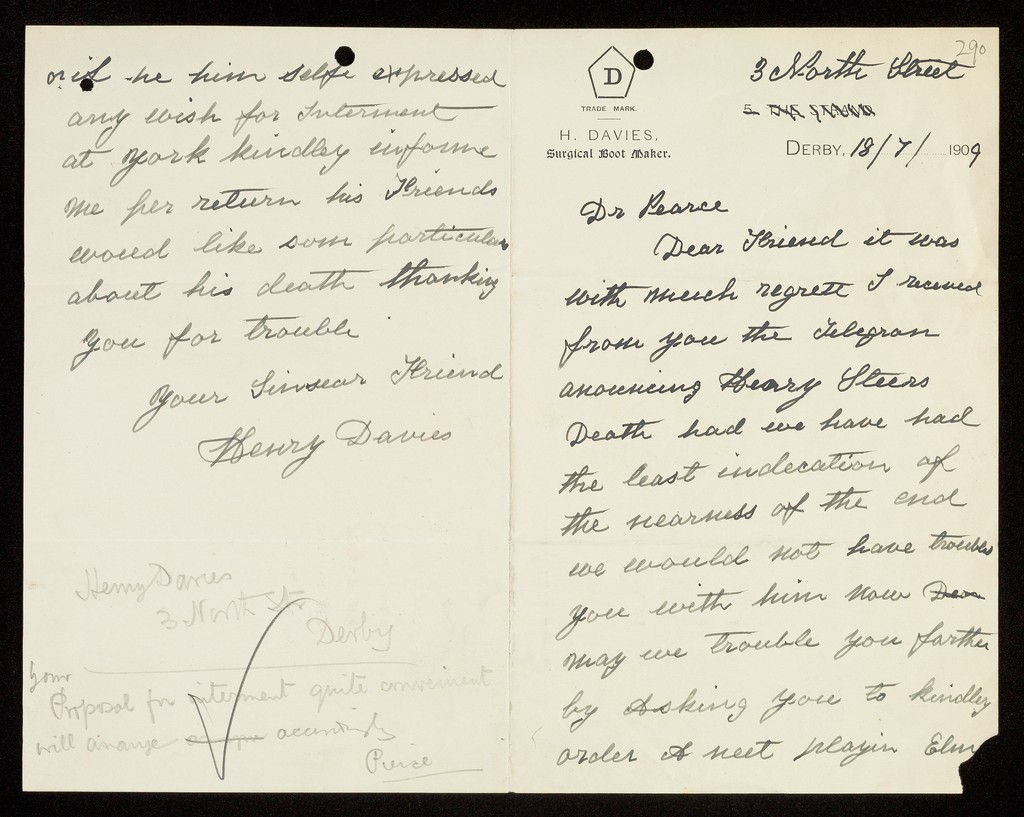 290
D
TRADE MARK.
H. DAVIES,
Surgical Boot Maker.
3 North Street
5
DERBY, 18/7/ 1909
Dr Pearce
Dear Friend it was
with much regrett I received
from you the Telegran
anouncing Henry Steers
Death had we have had
the least indecation of
the nearness of the end
we would not have trouble
you with him now Dear
may we trouble you farther
by Asking you to kindley
order A neet playin Elm
or if he him selfe expressed
any wish for Interment
at york kindley informe
me per return his Friends
woued like som particular
about his death thanking
you for trouble
your Sinsear Friend
Henry Davies
Henry Davies
3 North St
Derby
Your
Proposal for interment quite convenient
will arrange accordingly
Pierce